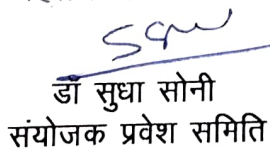 डॉ सुधा सोनी
संयोजक प्रवेश समिति